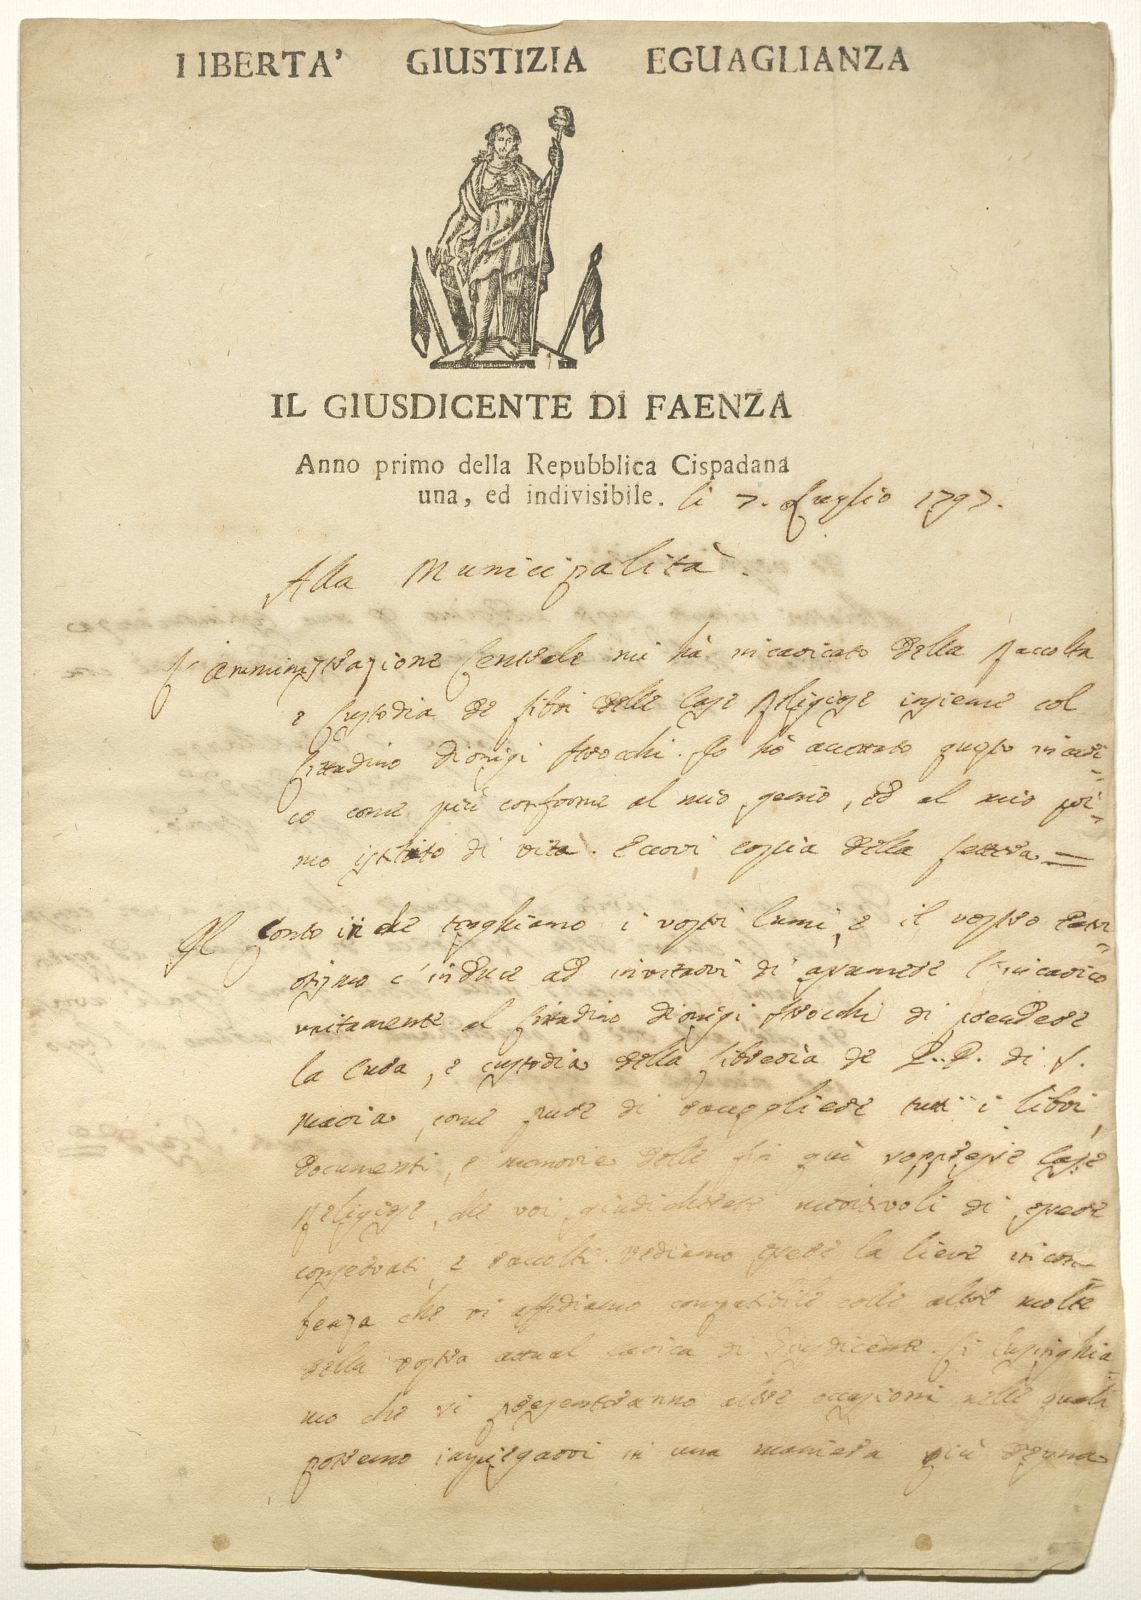 LIBERTA' GIUSTIZIA EGUAGLIANZA
IL GIUSDICENTE DI FAENZA
Anno primo della Repubblica Cispadana
una, ed indivisibile. li 7. Luglio 1797.
Alla Municipalità.
L'Amministrazione Centrale mi hà incaricato della Raccolta
e Custodia de Libri delle Case Religiose insieme col
Cittadino Dionigi Strocchi. Io hò accettato questo incari-
co come più conforme al mio genio, ed al mio pri-
mo istituto di vita. Eccovi copia della lettera =
Il Conto in che tenghiamo i vostri lumi, e il vostro Patri-
otismo c'induce ad invitarvi di assumere l'incarico
unitamente al Cittadino Dionigi Strocchi di prendere
la Cura, e custodia della Libreria de P. P. di S.
Maria, come pure di raccogliere tutti i libri,
documenti, e memorie delle fin quì soppresse Case
Religiose, che voi giudicherete meritevoli di essere
conservati, e raccolti. Vediamo essere la lieve incom-
benza che vi affidiamo compatibile colle altre molte
della vostra attual carica di Giusdicente. Ci lusinghia-
mo che si presenteranno altre occasioni nelle quali
potremo impiegarvi in una maniera più degna